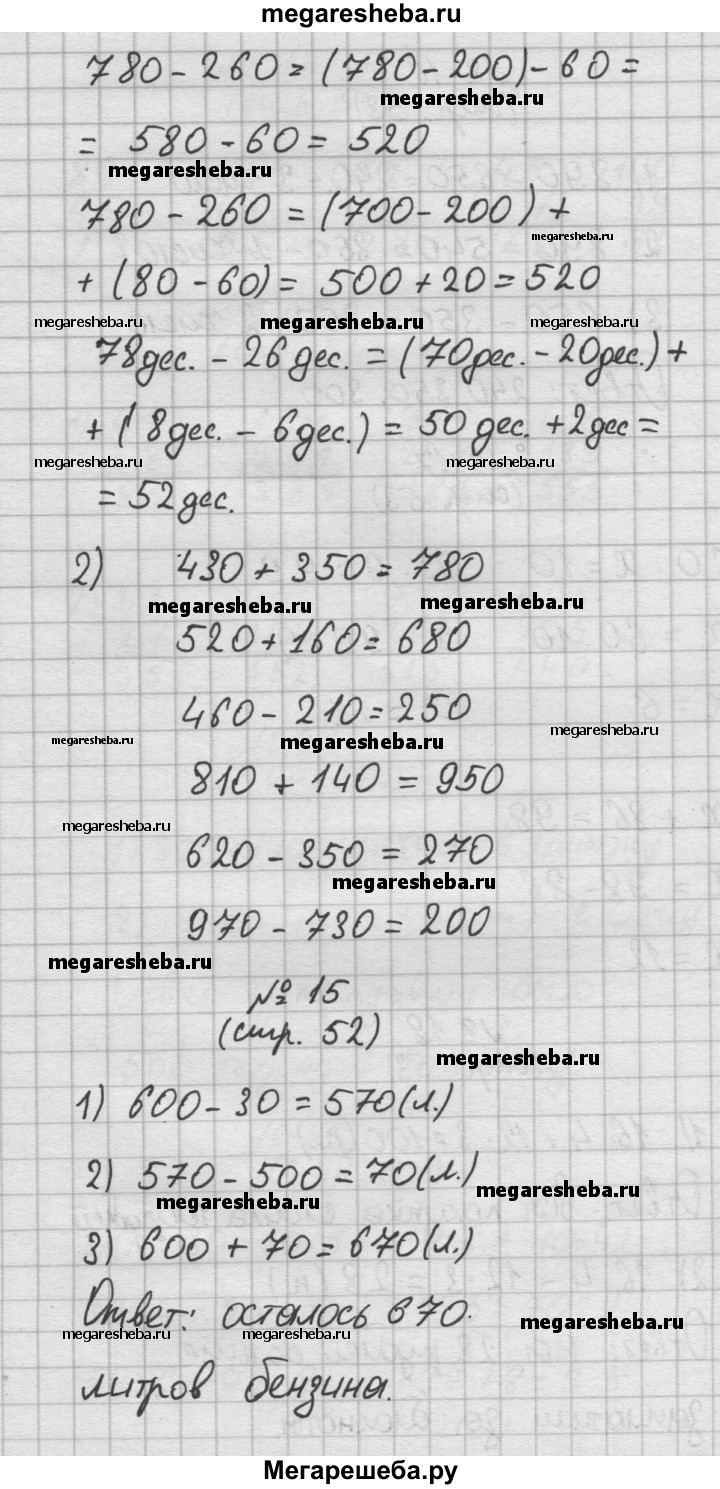 megaresheba.ru
780 - 260 = (780 - 200) - 60 =
megaresheba.ru
= 580 - 60 = 520
megaresheba.ru
780 - 260 = (700 - 200) +
megaresheba.ru
+ (80 - 60) = 500 + 20 = 520
megaresheba.ru megaresheba.ru megaresheba.ru
78дес. - 26дес. = (70дес. - 20дес.) +
+ (8дес. - 6дес.) = 50 дес. + 2дес =
megaresheba.ru megaresheba.ru
= 52дес.
2) 430 + 350 = 780
megaresheba.ru megaresheba.ru
520 + 160 = 680
460 - 210 = 250
megaresheba.ru megaresheba.ru megaresheba.ru
810 + 140 = 950
megaresheba.ru
620 - 350 = 270
megaresheba.ru
970 - 730 = 200
megaresheba.ru
№ 15
(стр. 52)
megaresheba.ru
1) 600 - 30 = 570(л.)
2) 570 - 500 = 70(л.)
megaresheba.ru megaresheba.ru
3) 600 + 70 = 670(л.)
Ответ: осталось 670
megaresheba.ru megaresheba.ru megaresheba.ru
литров бензина.
Мегарешеба.ру